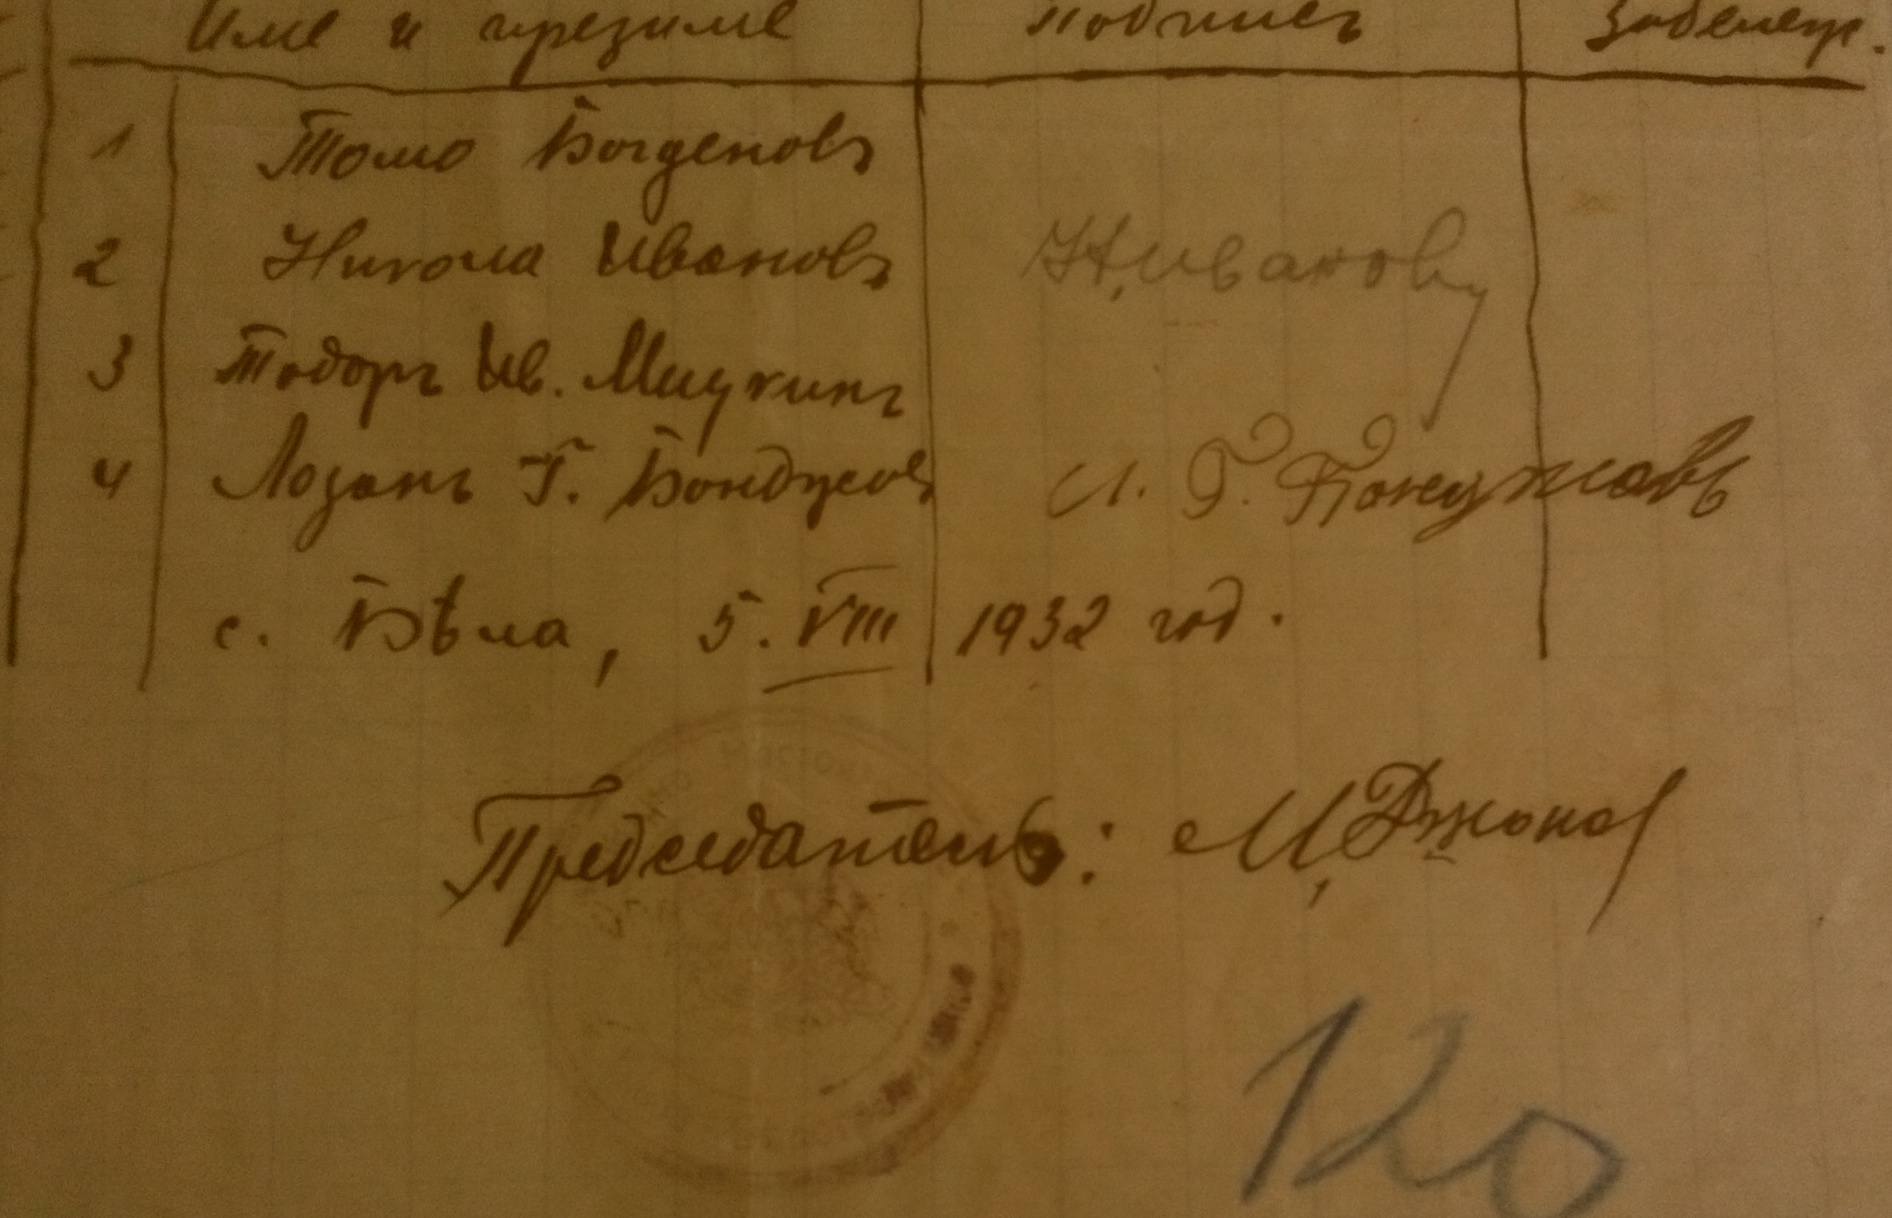 Име и презиме подписъ Забележ.
1 Томо Богдановъ
2 Никола Ивановъ Н. Ивановъ
3 Тодоръ Ив. Мицкинъ
4 Лозанъ Г. Бонджовъ Л. Г. Бонджовъ
с. Бѣла, 5. VIII 1932 год.
Председатель: М. Джонов
120